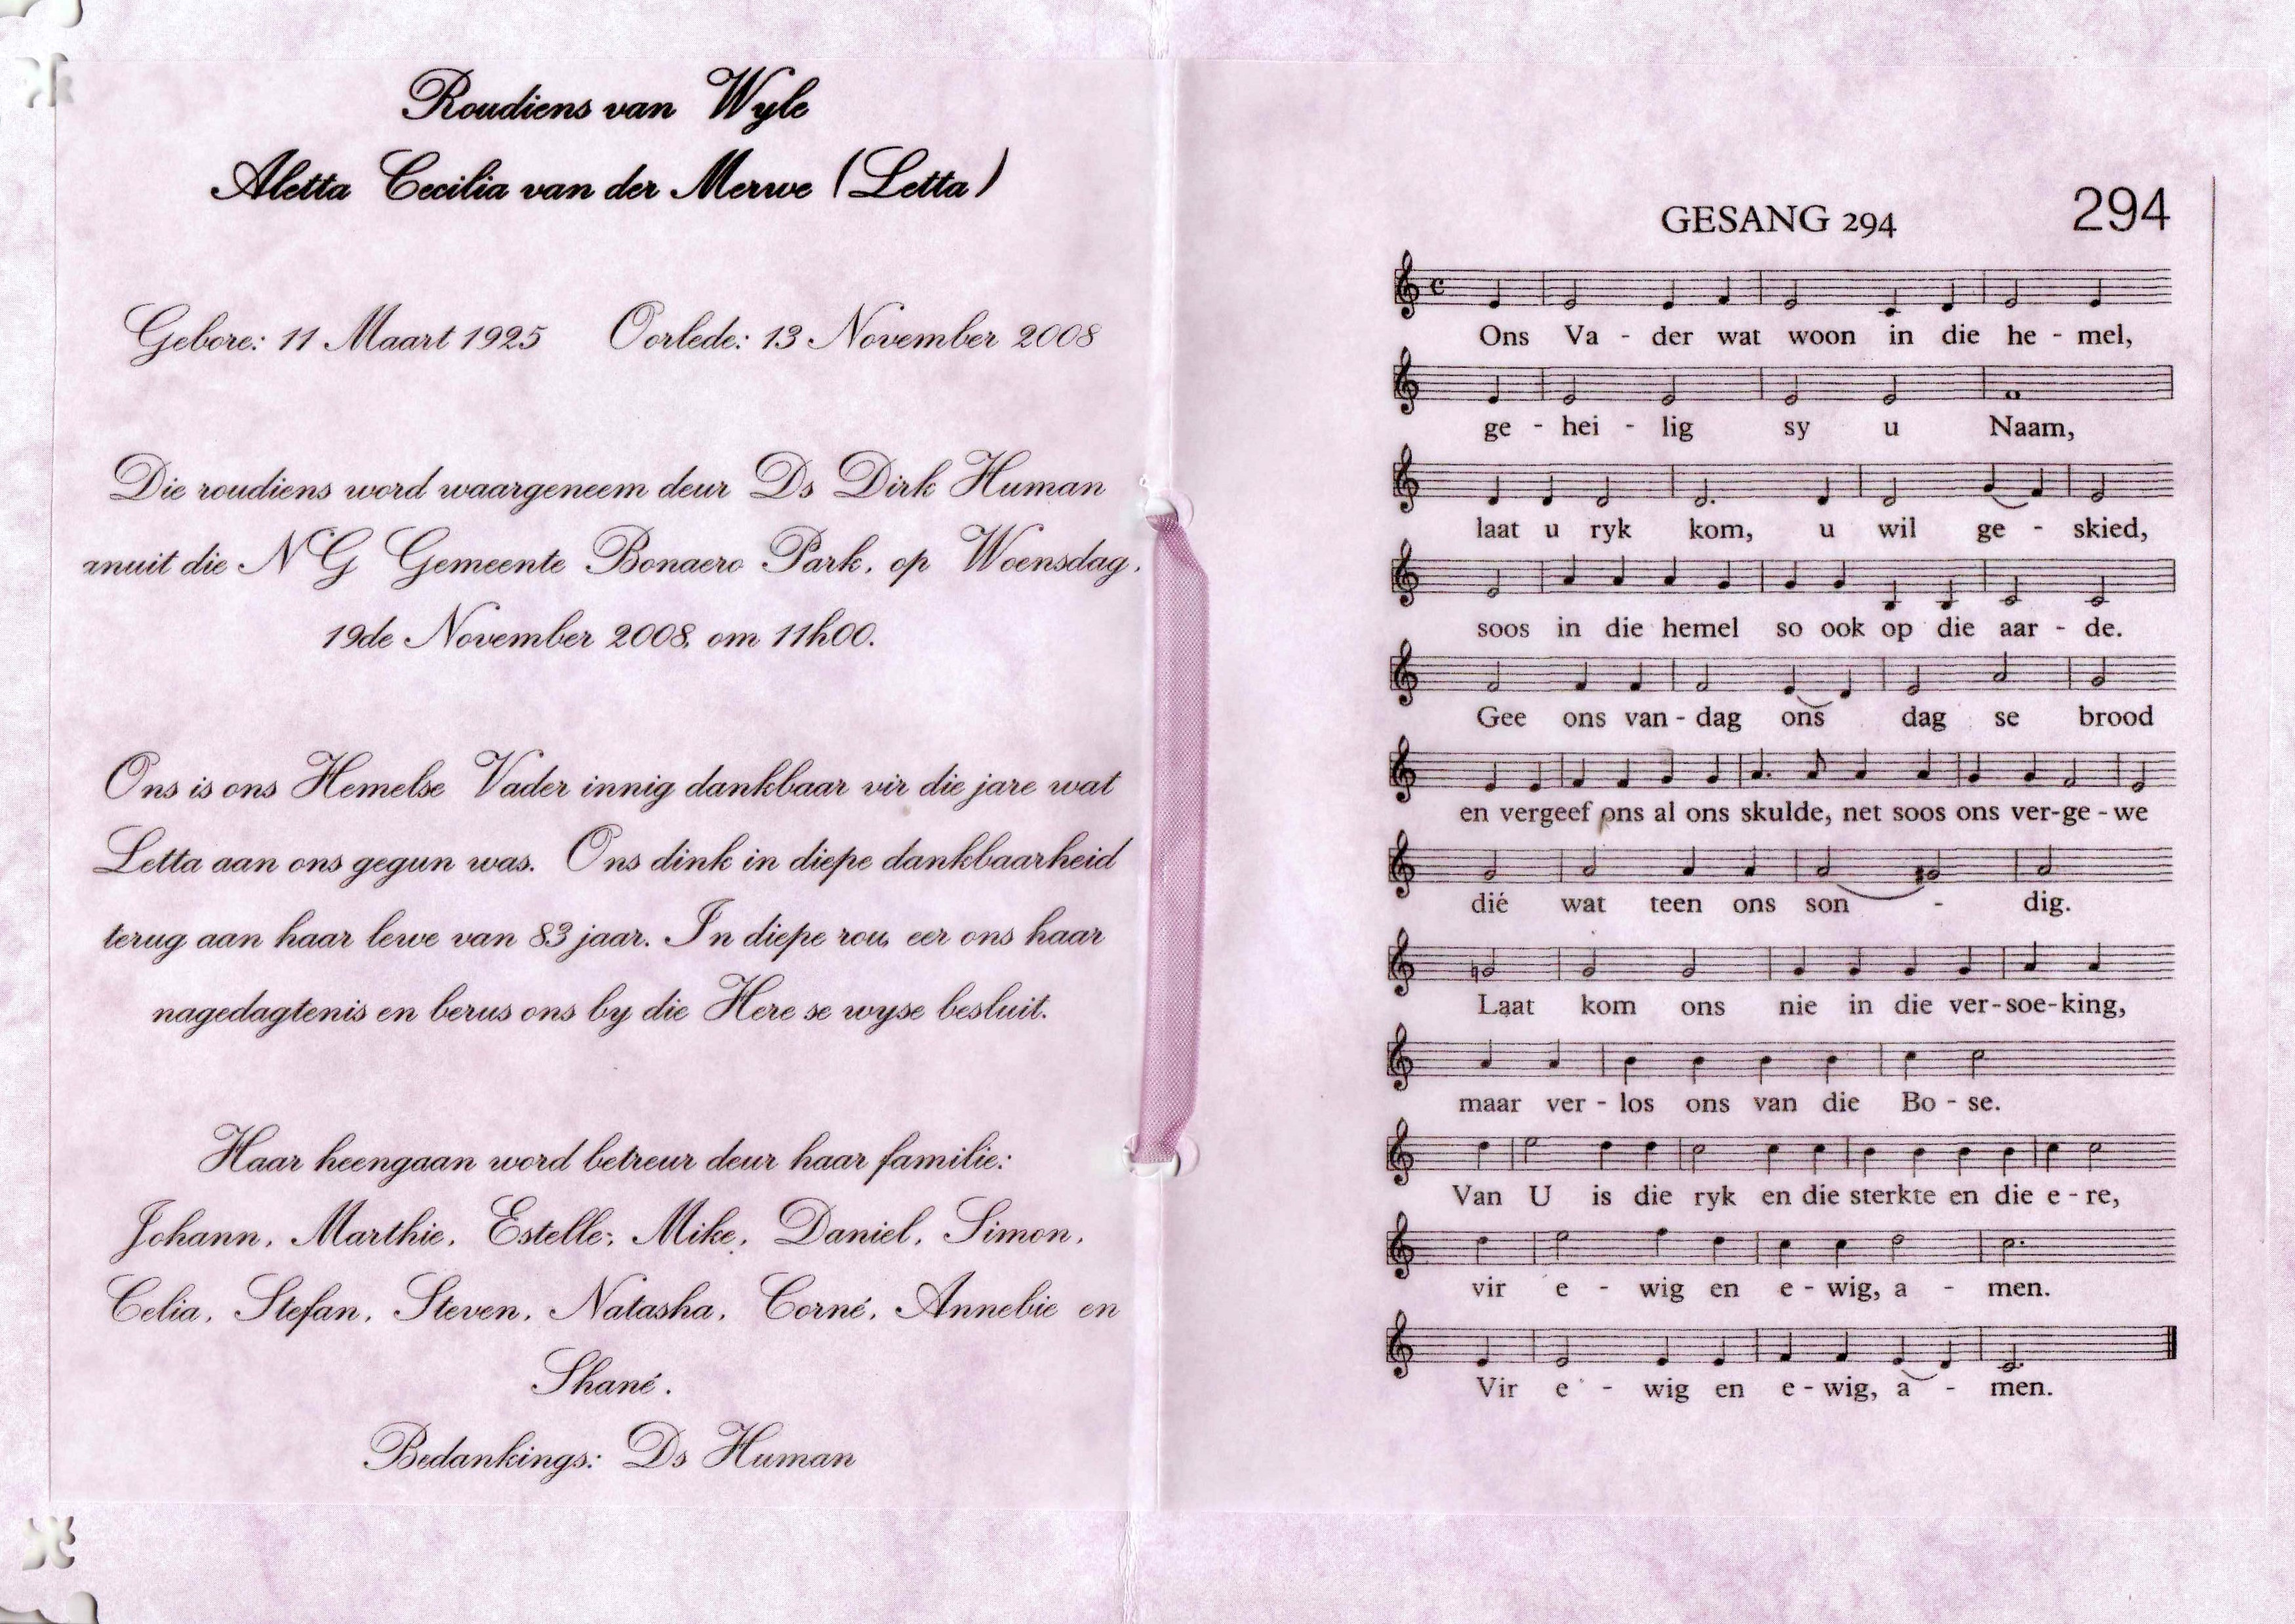 Roudiens van Wyle
Aletta Cecilia van der Merwe (Letta)
Gebore: 11 Maart 1925 Oorlede: 13 November 2008
Die roudiens word waargeneem deur Ds Dirk Human
anuit die NG Gemeente Bonaero Park, op Woensdag,
19de November 2008, om 11h00.
Ons is ons Hemelse Vader innig dankbaar vir die jare wat
Letta aan ons gegun was. Ons dink in diepe dankbaarheid
terug aan haar lewe van 83 jaar. In diepe rou, eer ons haar
nagedagtenis en berus ons by die Here se wyse besluit.
Haar heengaan word betreur deur haar familie:
Johann, Marthie, Estelle; Mike, Daniel, Simon,
Celia, Stefan, Steven, Natasha, Corné, Annebie en
Shané.
Bedankings: Ds Human
GESANG 294 294
Ons Va - der wat woon in die he - mel,
ge - hei - lig sy u Naam,
laat u ryk kom, u wil ge - skied,
soos in die hemel so ook op die aar - de.
Gee ons van - dag ons dag se brood
en vergeef ons al ons skulde, net soos ons ver-ge - we
dié wat teen ons son - dig.
Laat kom ons nie in die ver-soe-king,
maar ver - los ons van die Bo - se.
Van U is die ryk en die sterkte en die e - re,
vir e - wig en e - wig, a - men.
Vir e - wig en e - wig, a - men.